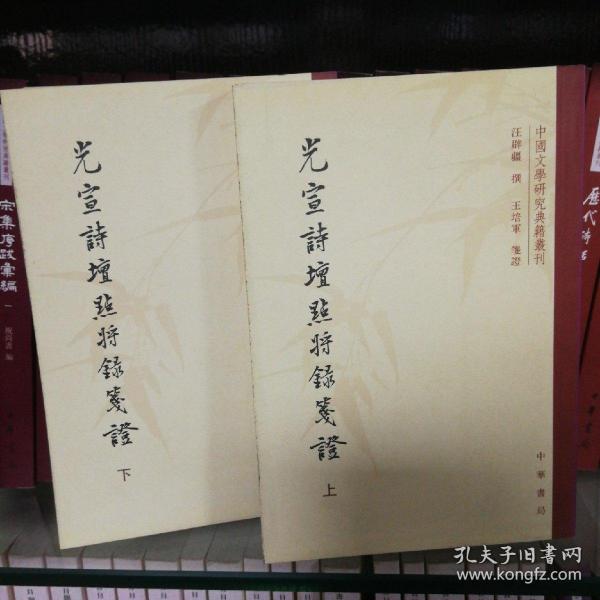 光宣詩壇點將錄箋證
下
光宣詩壇點將錄箋證
上
中國文學研究典籍叢刊
汪辟疆 撰 王培軍 箋證
中華書局
宋集序跋彙編
一
祝尚書 編
歷代
孔夫子旧书网
www.kongfz.com